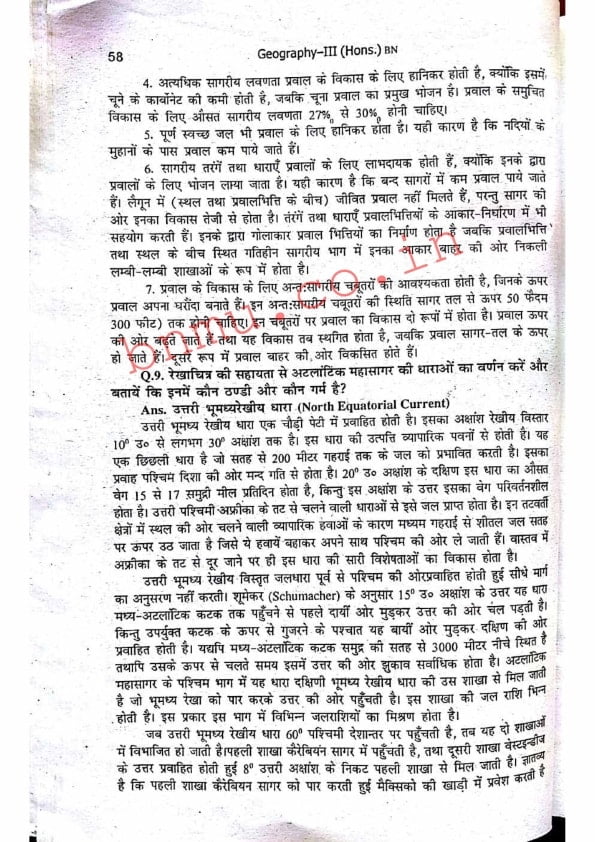 58
Geography–III (Hons.) BN
4. अत्यधिक सागरीय लवणता प्रवाल के विकास के लिए हानिकर होती है, क्योंकि इसमें
चूने के कार्बोनेट की कमी होती है, जबकि चूना प्रवाल का प्रमुख भोजन है। प्रवाल के समुचित
विकास के लिए औसत सागरीय लवणता 27‰ से 30‰ होनी चाहिए।
5. पूर्ण स्वच्छ जल भी प्रवाल के लिए हानिकर होता है। यही कारण है कि नदियों के
मुहानों के पास प्रवाल कम पाये जाते हैं।
6. सागरीय तरंगें तथा धाराएँ प्रवालों के लिए लाभदायक होती हैं, क्योंकि इनके द्वारा
प्रवालों के लिए भोजन लाया जाता है। यही कारण है कि बन्द सागरों में कम प्रवाल पाये जाते
हैं। लैगून में (स्थल तथा प्रवालभित्ति के बीच) जीवित प्रवाल नहीं मिलते हैं, परन्तु सागर की
ओर इनका विकास तेजी से होता है। तंरगें तथा धाराएँ प्रवालभित्तियों के आकार-निर्धारण में भी
सहयोग करती हैं। इनके द्वारा गोलाकार प्रवाल भित्तियों का निर्माण होता है जबकि प्रवालभित्ति
तथा स्थल के बीच स्थित गतिहीन सागरीय भाग में इनका आकार बाहर की ओर निकली
लम्बी-लम्बी शाखाओं के रूप में होता है।
7. प्रवाल के विकास के लिए अन्त:सागरीय चबूतरों की आवश्यकता होती है, जिनके ऊपर
प्रवाल अपना घरौंदा बनाते हैं। इन अन्त:सागरीय चबूतरों की स्थिति सागर तल से ऊपर 50 फैदम
300 फीट) तक होनी चाहिए। इन चबूतरों पर प्रवाल का विकास दो रूपों में होता है। प्रवाल ऊपर
की ओर बढ़ते जाते हैं तथा यह विकास तब स्थगित होता है, जबकि प्रवाल सागर-तल के ऊपर
हो जाते हैं। दूसरे रूप में प्रवाल बाहर की ओर विकसित होते हैं।
bnmu.co.in
Q.9. रेखाचित्र की सहायता से अटलांटिक महासागर की धाराओं का वर्णन करें और
बतायें कि इनमें कौन ठण्डी और कौन गर्म है?
Ans. उत्तरी भूमध्यरेखीय धारा (North Equatorial Current)
उत्तरी भूमध्य रेखीय धारा एक चौड़ी पेटी में प्रवाहित होती है। इसका अक्षांश रेखीय विस्तार
10⁰ उ० से लगभग 30⁰ अक्षांश तक है। इस धारा की उत्पत्ति व्यापारिक पवनों से होती है। यह
एक छिछली धारा है जो सतह से 200 मीटर गहराई तक के जल को प्रभावित करती है। इसका
प्रवाह पश्चिम दिशा की ओर मन्द गति से होता है। 20⁰ उ० अक्षांश के दक्षिण इस धारा का औसत
वेग 15 से 17 समुद्री मील प्रतिदिन होता है, किन्तु इस अक्षांश के उत्तर इसका वेग परिवर्तनशील
होता है। उत्तरी पश्चिमी अफ्रीका के तट से चलने वाली धाराओं से इसे जल प्राप्त होता है। इन तटवर्ती
क्षेत्रों में स्थल की ओर चलने वाली व्यापारिक हवाओं के कारण मध्यम गहराई से शीतल जल सतह
पर ऊपर उठ जाता है जिसे ये हवायें बहाकर अपने साथ पश्चिम की ओर ले जाती हैं। वास्तव में
अफ्रीका के तट से दूर जाने पर ही इस धारा की सारी विशेषताओं का विकास होता है।
उत्तरी भूमध्य रेखीय विस्तृत जलधारा पूर्व से पश्चिम की ओरप्रवाहित होती हुई सीधे मार्ग
का अनुसरण नहीं करती। शूमेकर (Schumacher) के अनुसार 15⁰ उ० अक्षांश के उत्तर यह धारा
मध्य-अटलांटिक कटक तक पहुँचने से पहले दायीं ओर मुड़कर उत्तर की ओर चल पड़ती है।
किन्तु उपर्युक्त कटक के ऊपर से गुजरने के पश्चात यह बायीं ओर मुड़कर दक्षिण की ओर
प्रवाहित होती है। यद्यपि मध्य-अटलांटिक कटक समुद्र की सतह से 3000 मीटर नीचे स्थित है
तथापि उसके ऊपर से चलते समय इसमें उत्तर की ओर झुकाव सर्वाधिक होता है। अटलांटिक
महासागर के पश्चिम भाग में यह धारा दक्षिणी भूमध्य रेखीय धारा की उस शाखा से मिल जाती
है जो भूमध्य रेखा को पार करके उत्तर की ओर पहुँचती है। इस शाखा की जल राशि भिन्न
होती है। इस प्रकार इस भाग में विभिन्न जलराशियों का मिश्रण होता है।
जब उत्तरी भूमध्य रेखीय धारा 60⁰ पश्चिमी देशान्तर पर पहुँचती है, तब यह दो शाखाओं
में विभाजित हो जाती है।पहली शाखा कैरेबियन सागर में पहुँचती है, तथा दूसरी शाखा वेस्टइन्डीज
के उत्तर प्रवाहित होती हुई 8⁰ उत्तरी अक्षांश के निकट पहली शाखा से मिल जाती है। ज्ञातव्य
है कि पहली शाखा कैरेबियन सागर को पार करती हुई मैक्सिको की खाड़ी में प्रवेश करती है